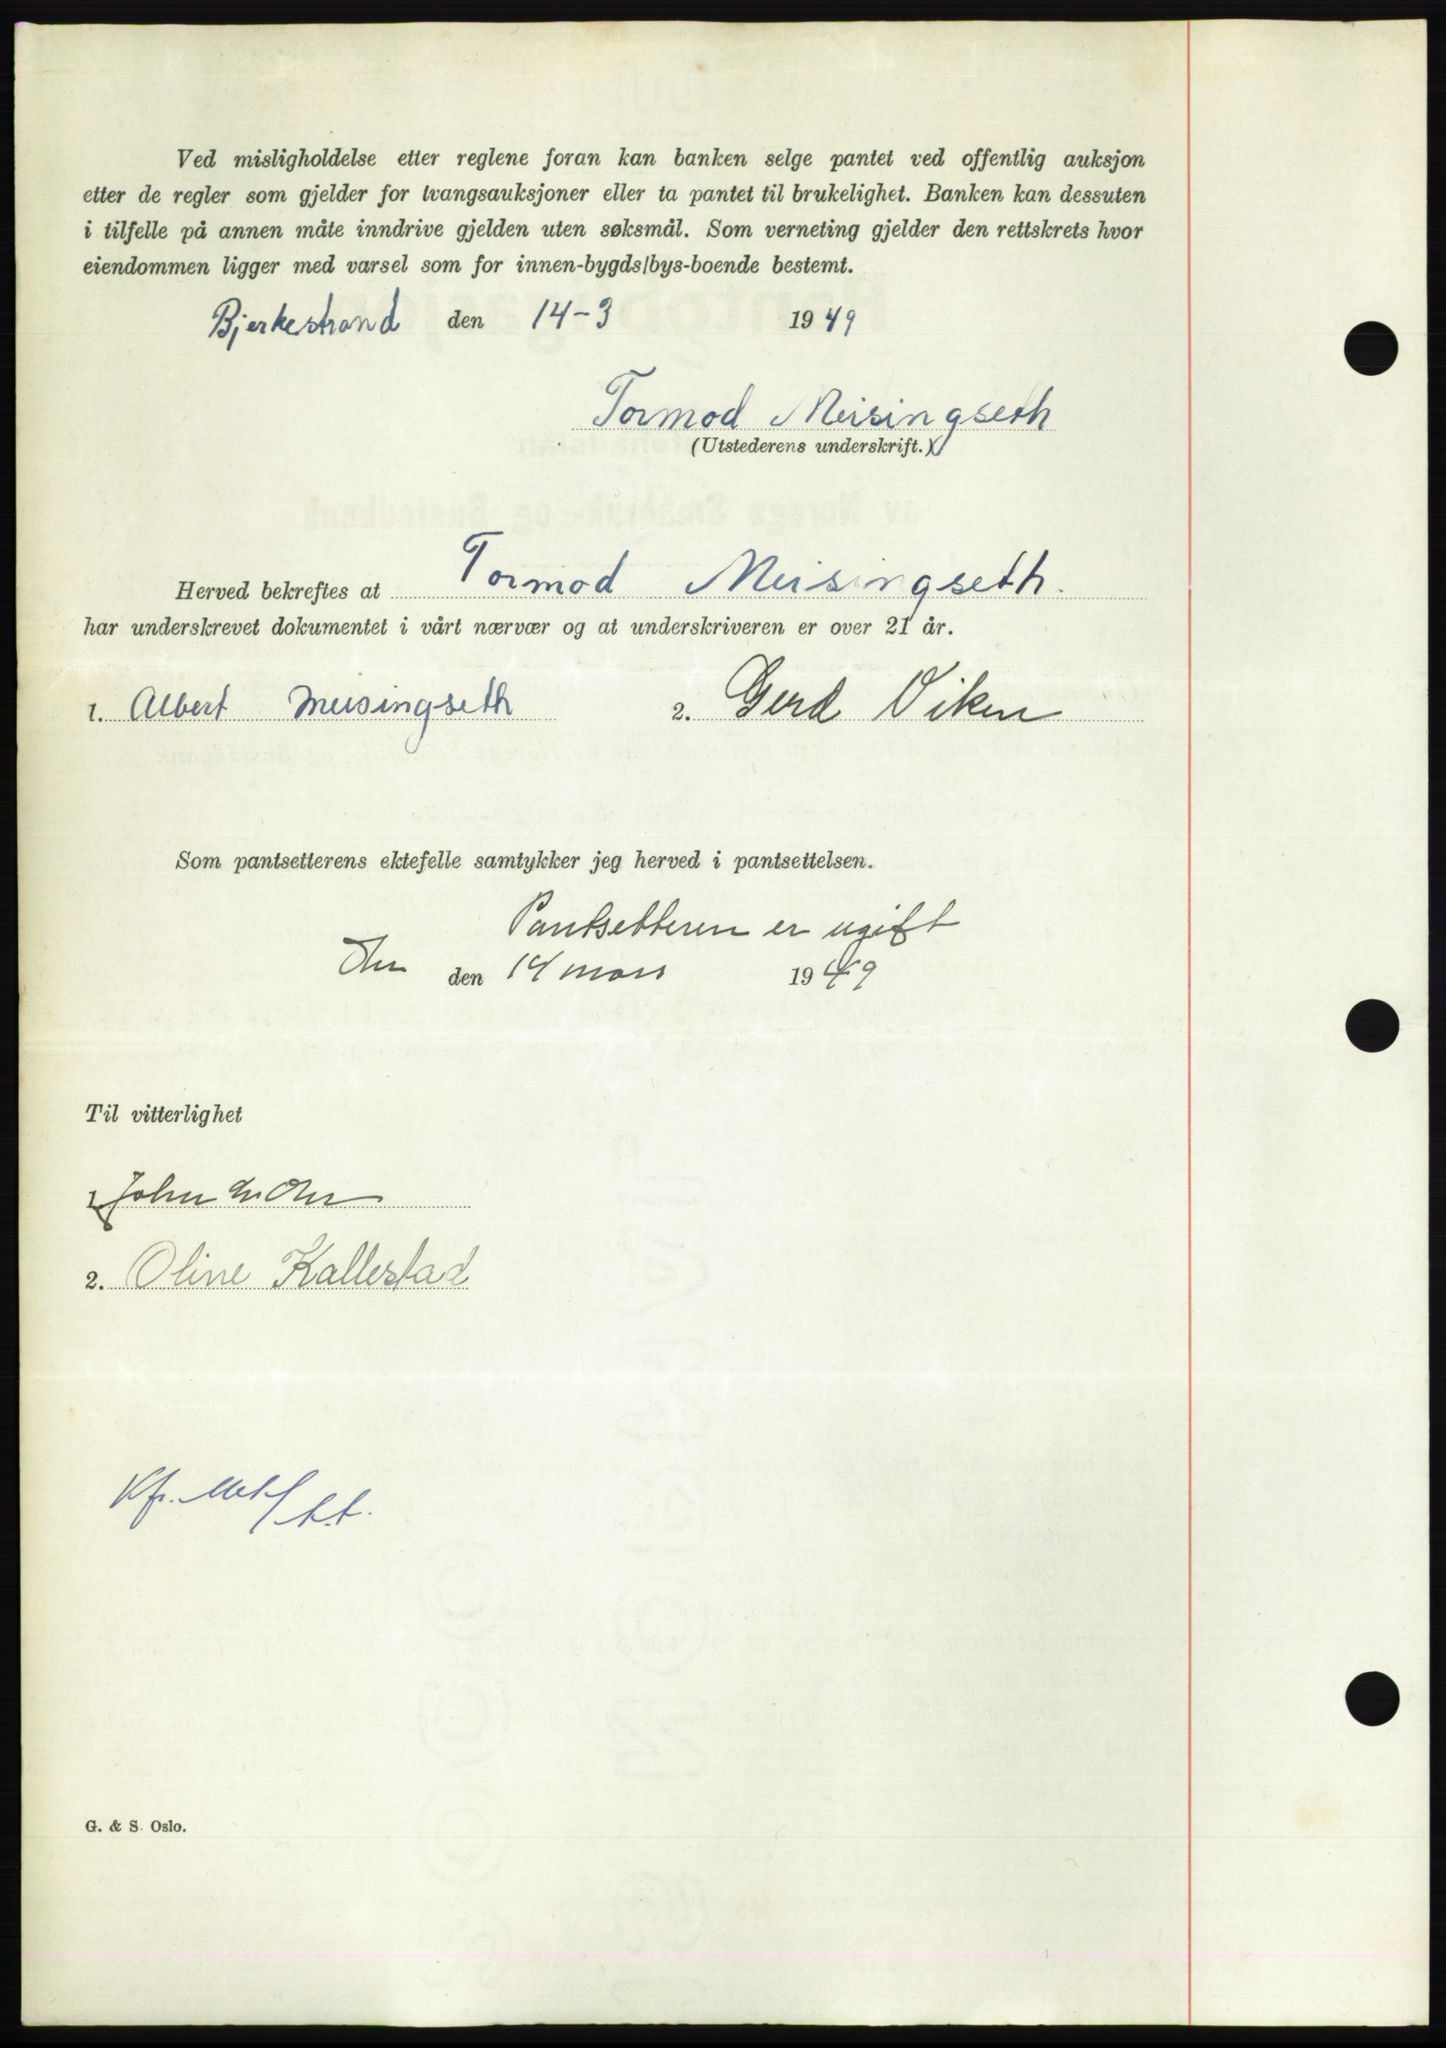 Ved misligholdelse etter reglene foran kan banken selge pantet ved offentlig auksjon
etter de regler som gjelder for tvangsauksjoner eller ta pantet til brukelighet. Banken kan dessuten
i tilfelle på annen måte inndrive gjelden uten søksmål. Som verneting gjelder den rettskrets hvor
eiendommen ligger med varsel som for innen-bygds/bys-boende bestemt.
Bjerkestrand den 14-3 1949
Tormod Meisingseth
(Utstederens underskrift.)
Herved bekreftes at Tormod Meisingseth.
har underskrevet dokumentet i vårt nærvær og at underskriveren er over 21 år.
1. Albert Meisingseth 2. Gerd Viken
Som pantsetterens ektefelle samtykker jeg herved i pantsettelsen.
Pantsetteren er ugift
den 14 mars 1949
Til vitterlighet
1. John
2. Oline Kallestad
Kfr.
G. & S. Oslo.